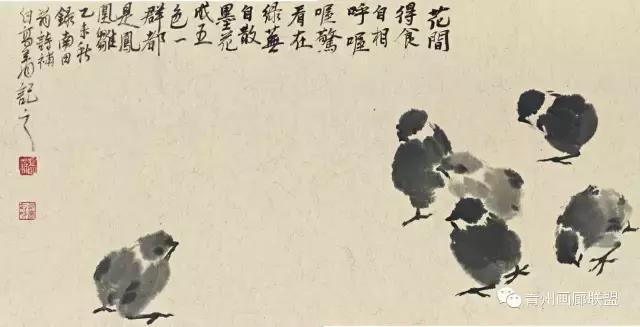 花間
得食
自相
呼喔
喔驚
看在
綠蕪
自散
墨花
成五
色一
群都
是鳳
凰雛
乙未秋
錄南田
翁詩補
白 記之
青州画廊联盟